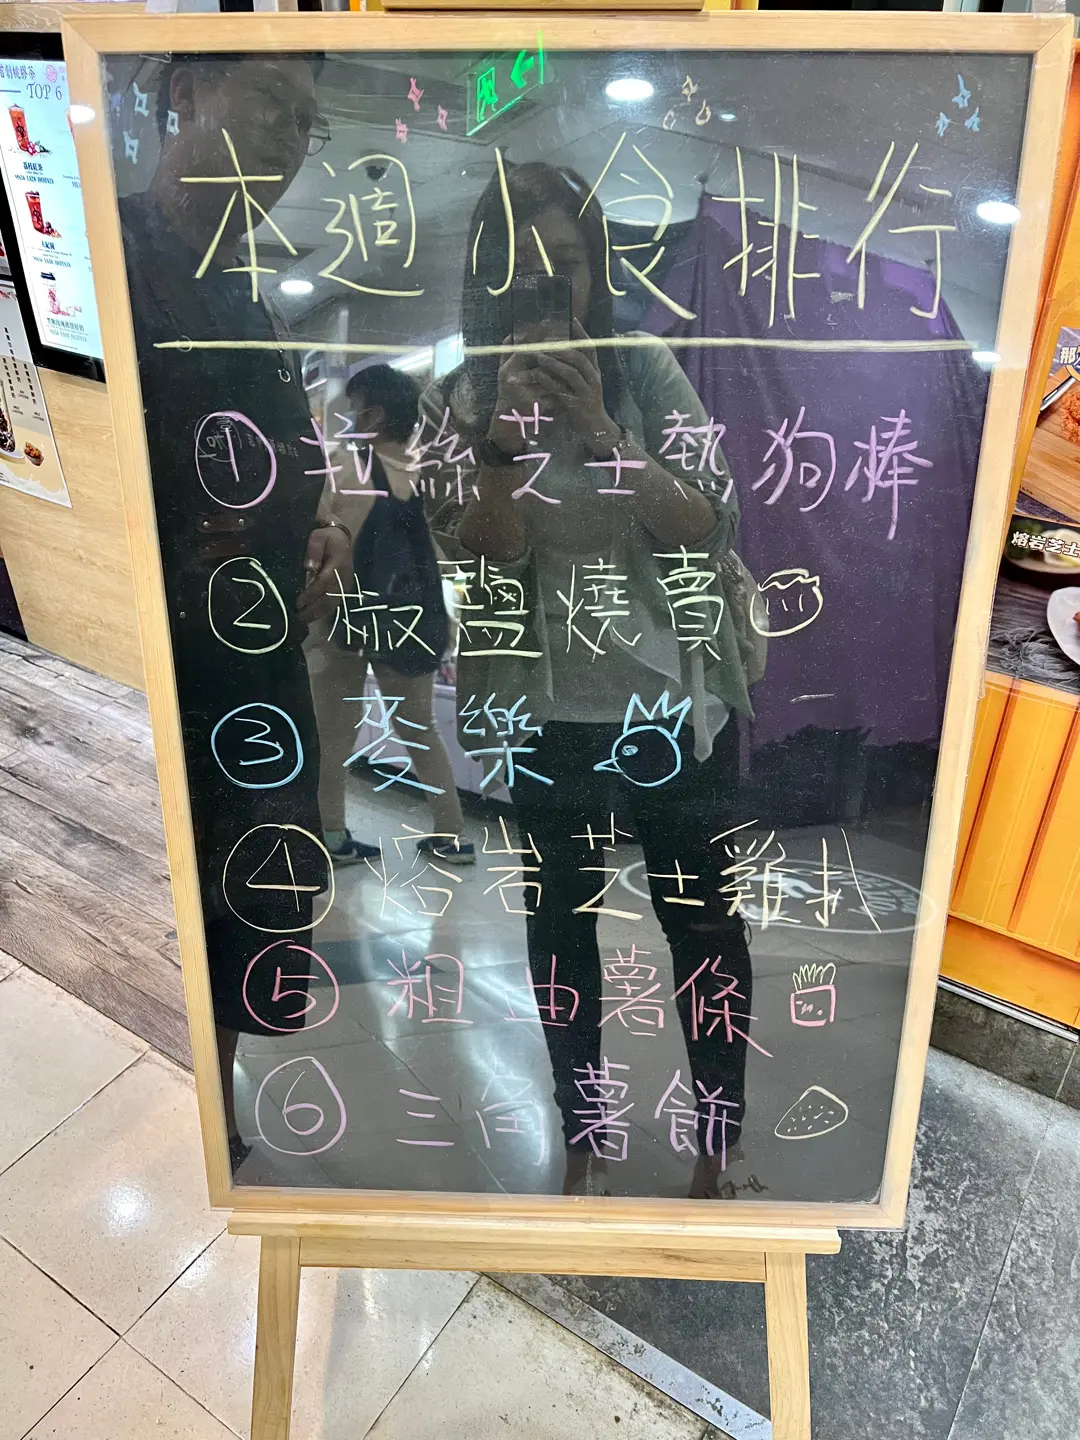 本週小食排行
① 拉絲芝士熱狗棒
② 椒鹽燒賣
③ 麥樂
④ 熔岩芝士雞扒
⑤ 粗由薯條
⑥ 三角薯餅
TOP 6
熔岩芝士